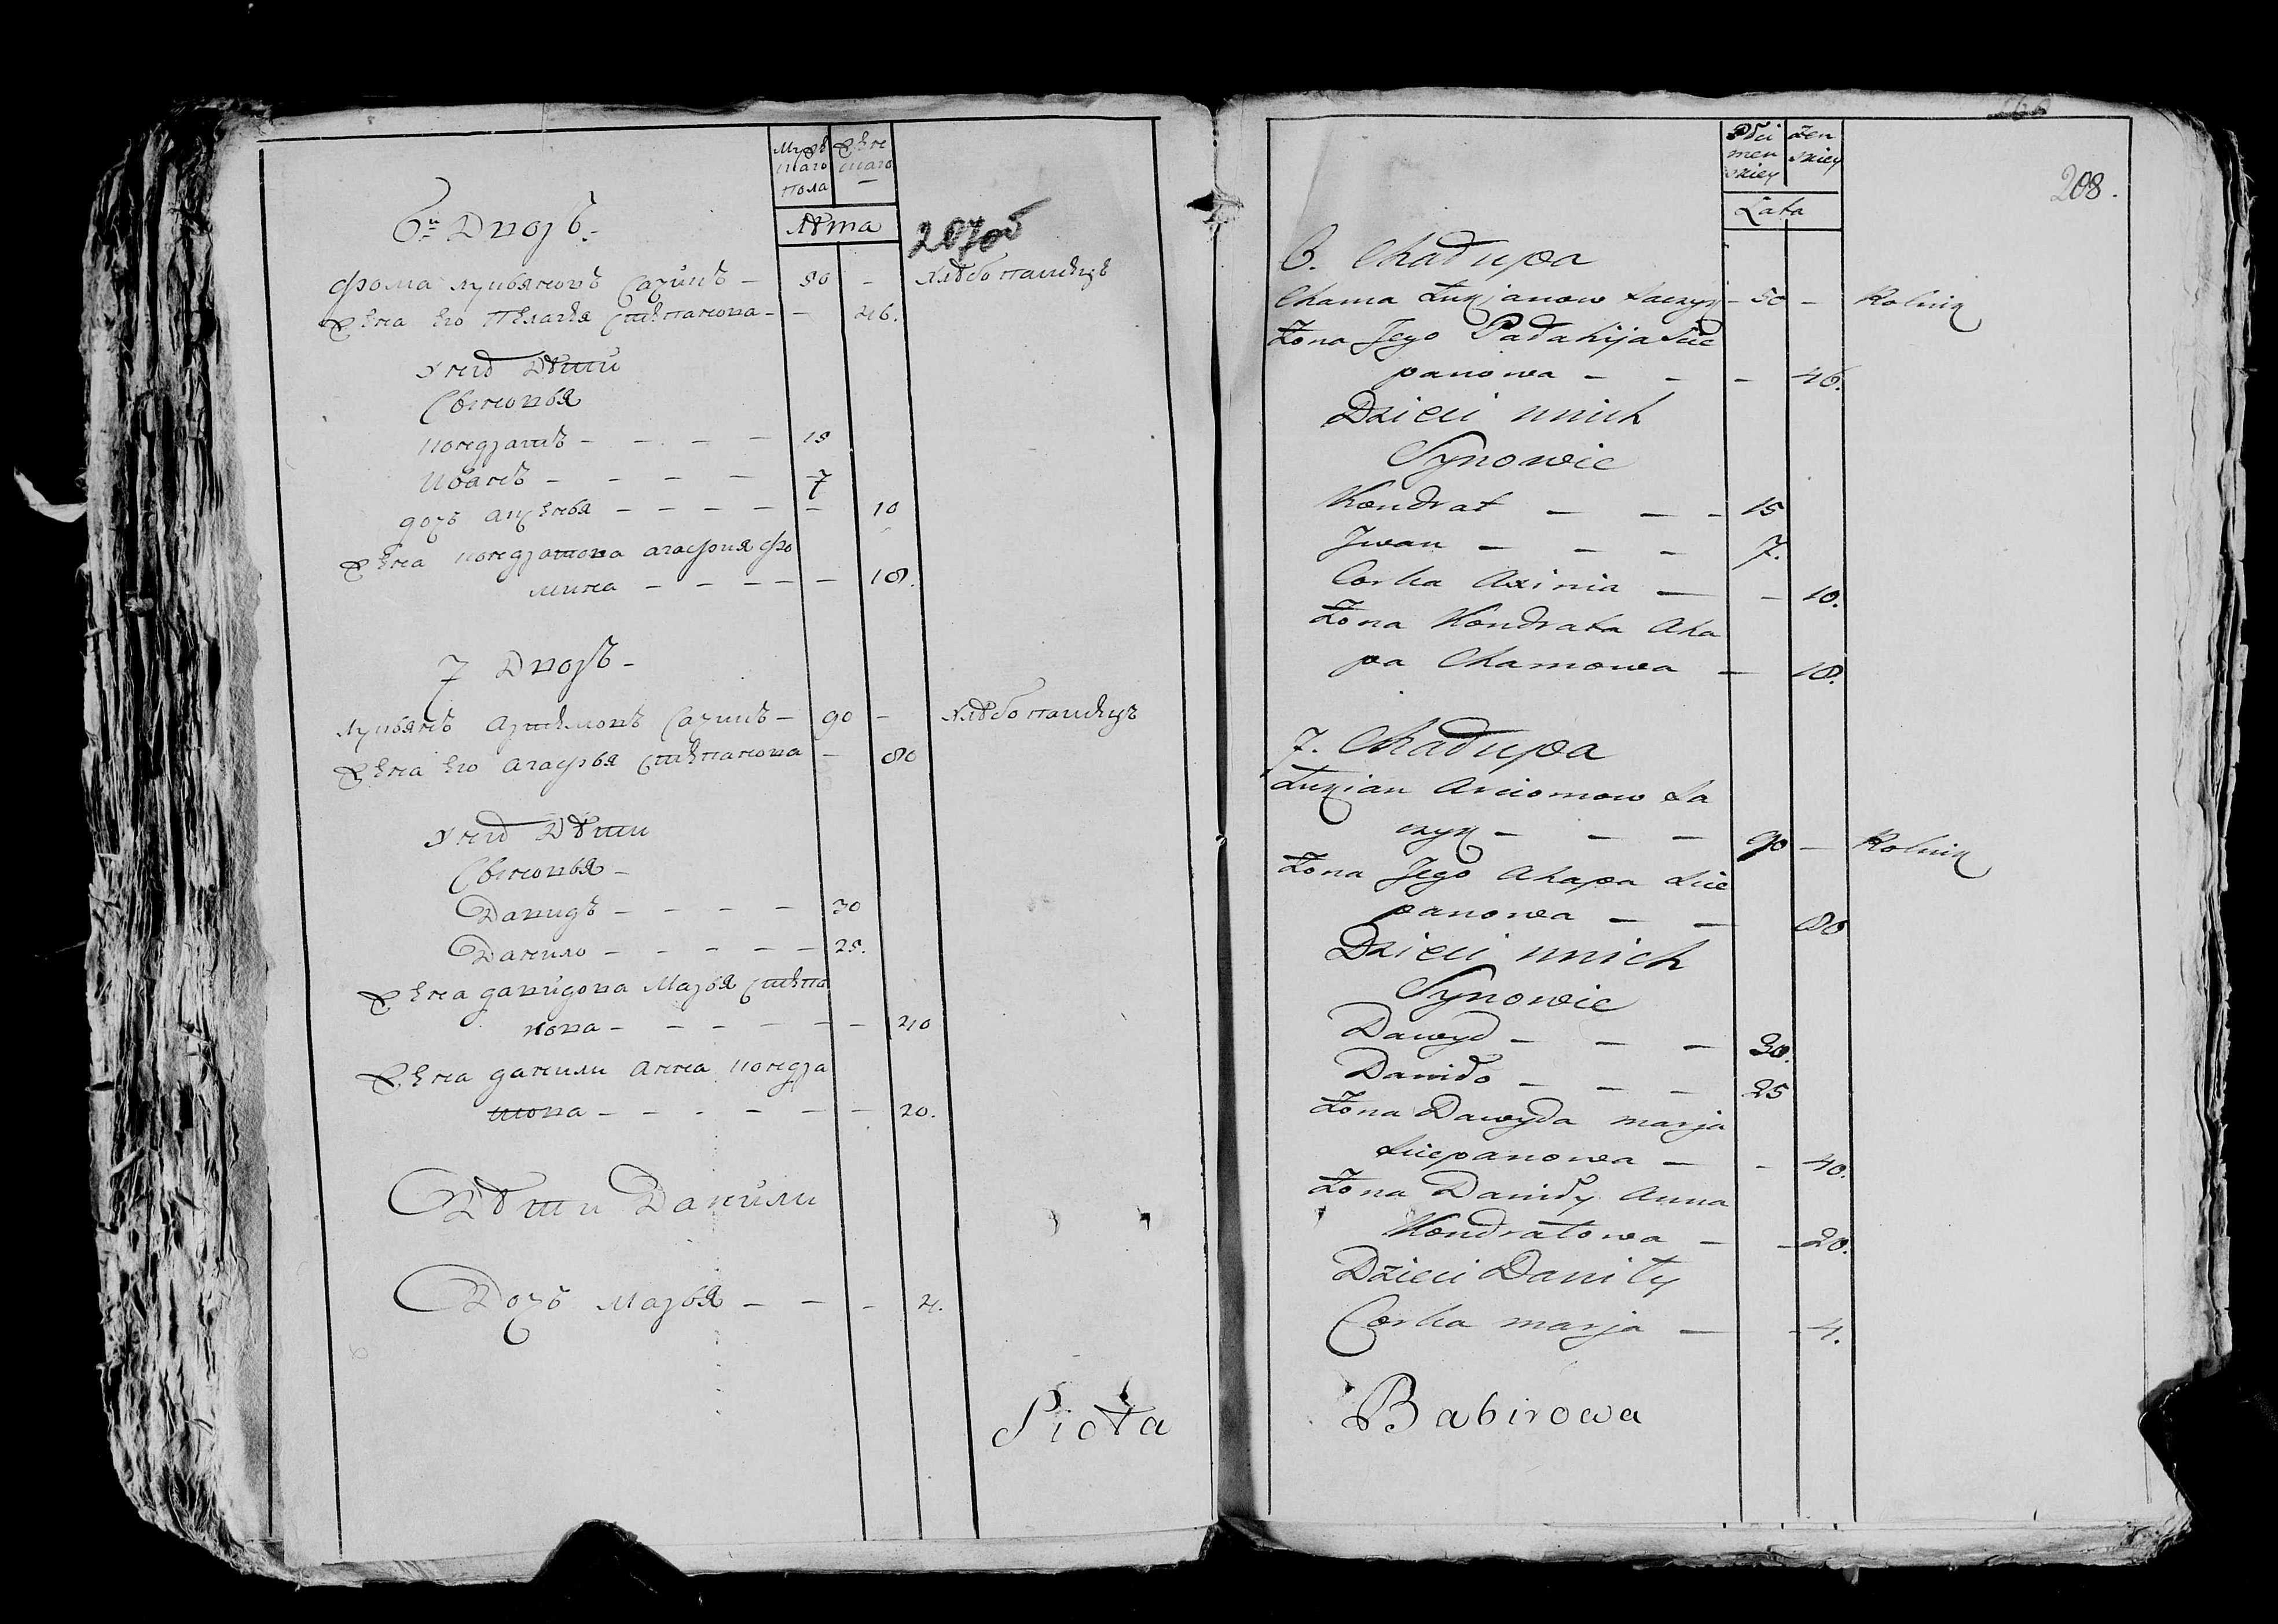 Мужѣ
скаго
пола
Женс
скаго
Лѣта
207 об
6й Дворъ.
Фома Лукьяновъ Сачикъ — 50 — хлѣбопашецъ
Жена его Пелагея Степанова — — 46.
У нихъ Дѣти
Сыновья
Кондратъ — — — — 15
Иванъ — — — — — 7
дочь Аксенья — — — — — 10
Жена Кондратова Агафия Фо
мина — — — — — 18.
7 Дворъ —
Лукьянъ Артемовъ Сачикъ — 90 — хлѣбопашецъ
Жена его Агафья Степанова — 80
У нихъ Дѣти
Сыновья —
Давидъ — — — — 30
Данило — — — — — 25.
Жена давидова Марья Степа
нова — — — — — — 40
Жена данили Анна Кондра
това — — — — — — 20.
Дѣти Данили
Дочь Марья — — — 4.
Sioła
208.
Płci
men
skiey
żen
skiey
Lata
6. Chałupa
Chama Łukjanow Saczyk — 50 — Rolnik
Żona Jego Pałahija Scie
panowa — — — 46.
Dzieci unich
Synowie
Kondrat — — — 15
Jwan — — — 7.
Corka Axinia — — 10.
Żona Kondrata Aha
pa Chamowa — 18.
7. Chałupa
Łukian Arciomow Sa
czyk — — — 90 — Rolnik
Żona Jego Ahapa Scie
panowa — — 80
Dzieci unich
Synowie
Dawyd — — — 30.
Daniło — — — 25
Żona Dawyda marja
Sciepanowa — — 40.
Żona Daniły Anna
Kondratowa — — 20.
Dzieci Daniły
Corka marja — — 4.
Babirowa